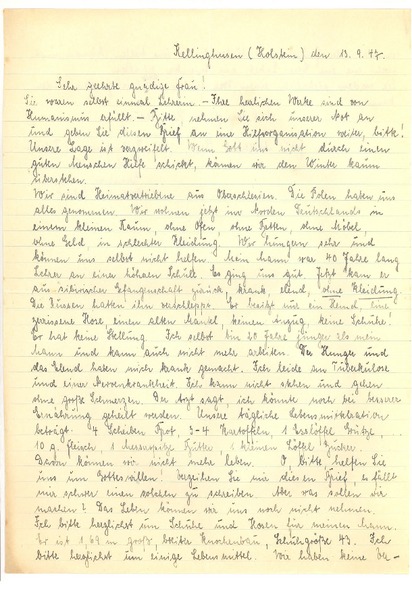 Kellinghusen (Holstein) den 13.9.47.
Sehr geehrte gnädige Frau!
Sie waren selbst einmal Lehrerin. – Ihre herrlichen Werke sind von
Humanismus erfüllt. – Bitte nehmen Sie sich unserer Not an
und geben Sie diesen Brief an eine Hilfsorganisation weiter, bitte!
Unsere Lage ist verzweifelt. Wenn Gott uns nicht durch einen
guten Menschen Hilfe schickt, können wir den Winter kaum
überstehen.
Wir sind Heimatvertriebene aus Oberschlesien. Die Polen haben uns
alles genommen. Wir wohnen jetzt im Norden Deutschlands in
einem kleinen Raum, ohne Ofen, ohne Betten, ohne Möbel,
ohne Geld, in schlechter Kleidung. Wir hungern sehr und
können uns selbst nicht helfen. Mein Mann war 40 Jahre lang
Lehrer an einer höheren Schule. Es ging uns gut. Jetzt kam er
aus sibirischer Gefangenschaft zurück, krank, elend, ohne Kleidung.
Die Russen hatten ihn verschleppt. Er besitzt nur ein Hemd, eine
zerrissene Hose, einen alten Mantel, keinen Anzug, keine Schuhe!
Er hat keine Stellung. Ich selbst bin 20 Jahre jünger als mein
Mann und kann auch nicht mehr arbeiten. Der Hunger und
das Elend haben mich krank gemacht. Ich leide an Tuberkulose
und einer Nervenkrankheit. Ich kann nicht stehen und gehen
ohne große Schmerzen. Der Arzt sagt, ich könnte noch bei besserer
Ernährung geheilt werden. Unsere tägliche Lebensmittelration
beträgt: 4 Scheiben Brot, 3-4 Kartoffeln, 1 Esslöffel Grütze,
10 g. Fleisch, 1 Messerspitze Butter, kleinen Löffel Zucker.
Davon können wir nicht mehr leben. O, bitte helfen Sie
uns um Gotteswillen! Verzeihen Sie mir diesen Brief, es fällt
mir schwer einen solchen zu schreiben. Aber was sollen wir
machen? Das Leben können wir uns noch nicht nehmen.
Ich bitte herzlichst um Schuhe und Hosen für meinen Mann.
Er ist 1,69 m groß, breiter Knochenbau, Schuhgröße 43. Ich
bitte herzlichst um einige Lebensmittel. Wir haben keine